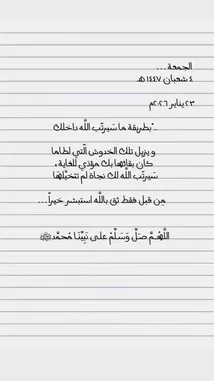 الجمعة ...
٤ شعبان ١٤٤٧ هـ
٢٣ يناير ٢٠٢٦م
.."بطريقة ما سَيرتّب اللَّه داخلك
و يزيل تلك الخدوش الّتي لطالما
كان بقائها بك مؤذي للغاية،
سَيرتّب اللَّه لك نجاة لم تتخيّلها
مِن قبل فقط ثق باللَّه استبشر خيراً...
اللَّهُمَّ صَلِّ وَسَلِّمْ على نَبِيِّنَا مُحمَّدﷺ